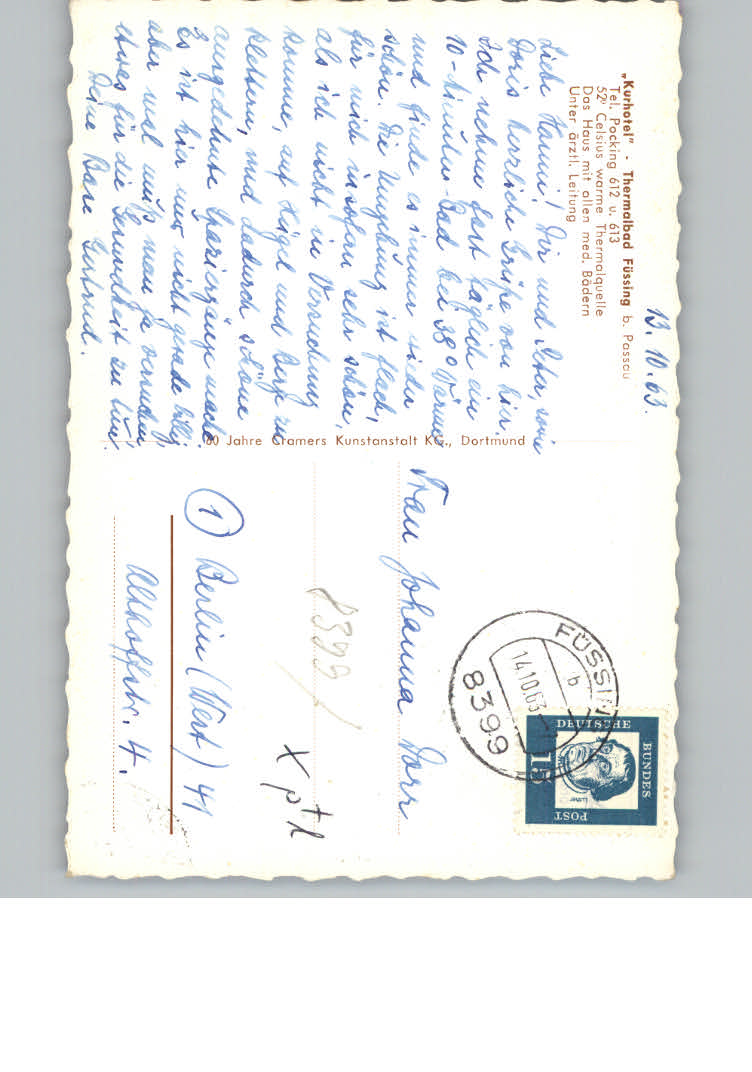 13.10.63.
„Kurhotel" - Thermalbad Füssing b. Passau
Tel. Pocking 612 u. 613
52° Celsius warme Thermalquelle
Das Haus mit allen med. Bädern
Unter ärztl. Leitung
Liebe Hanni! Dir und Peter, sowie
Doris herzliche Grüße von hier.
Ich nehme fast täglich ein
10-Minuten-Bad bei 38° Wärme
und finde es immer wieder
schön. Die Umgebung ist flach,
für mich insofern sehr schön,
als ich nicht in Versuchung
komme, auf Hügel und Berge zu
klettern, und dadurch schöne
ausgedehnte Spaziergänge mache.
Es ist hier nur nicht gerade billig,
aber mal muß man ja versuchen,
etwas für die Gesundheit zu tun.
Deine Gertrud.
60 Jahre Cramers Kunstanstalt KG., Dortmund
FÜSSING
b
14.10.63
8399
DEUTSCHE
BUNDES
POST
15
LUTHER
Frau Johanna Dorr
8399
① Berlin (West) 41
Althoffstr. 4.